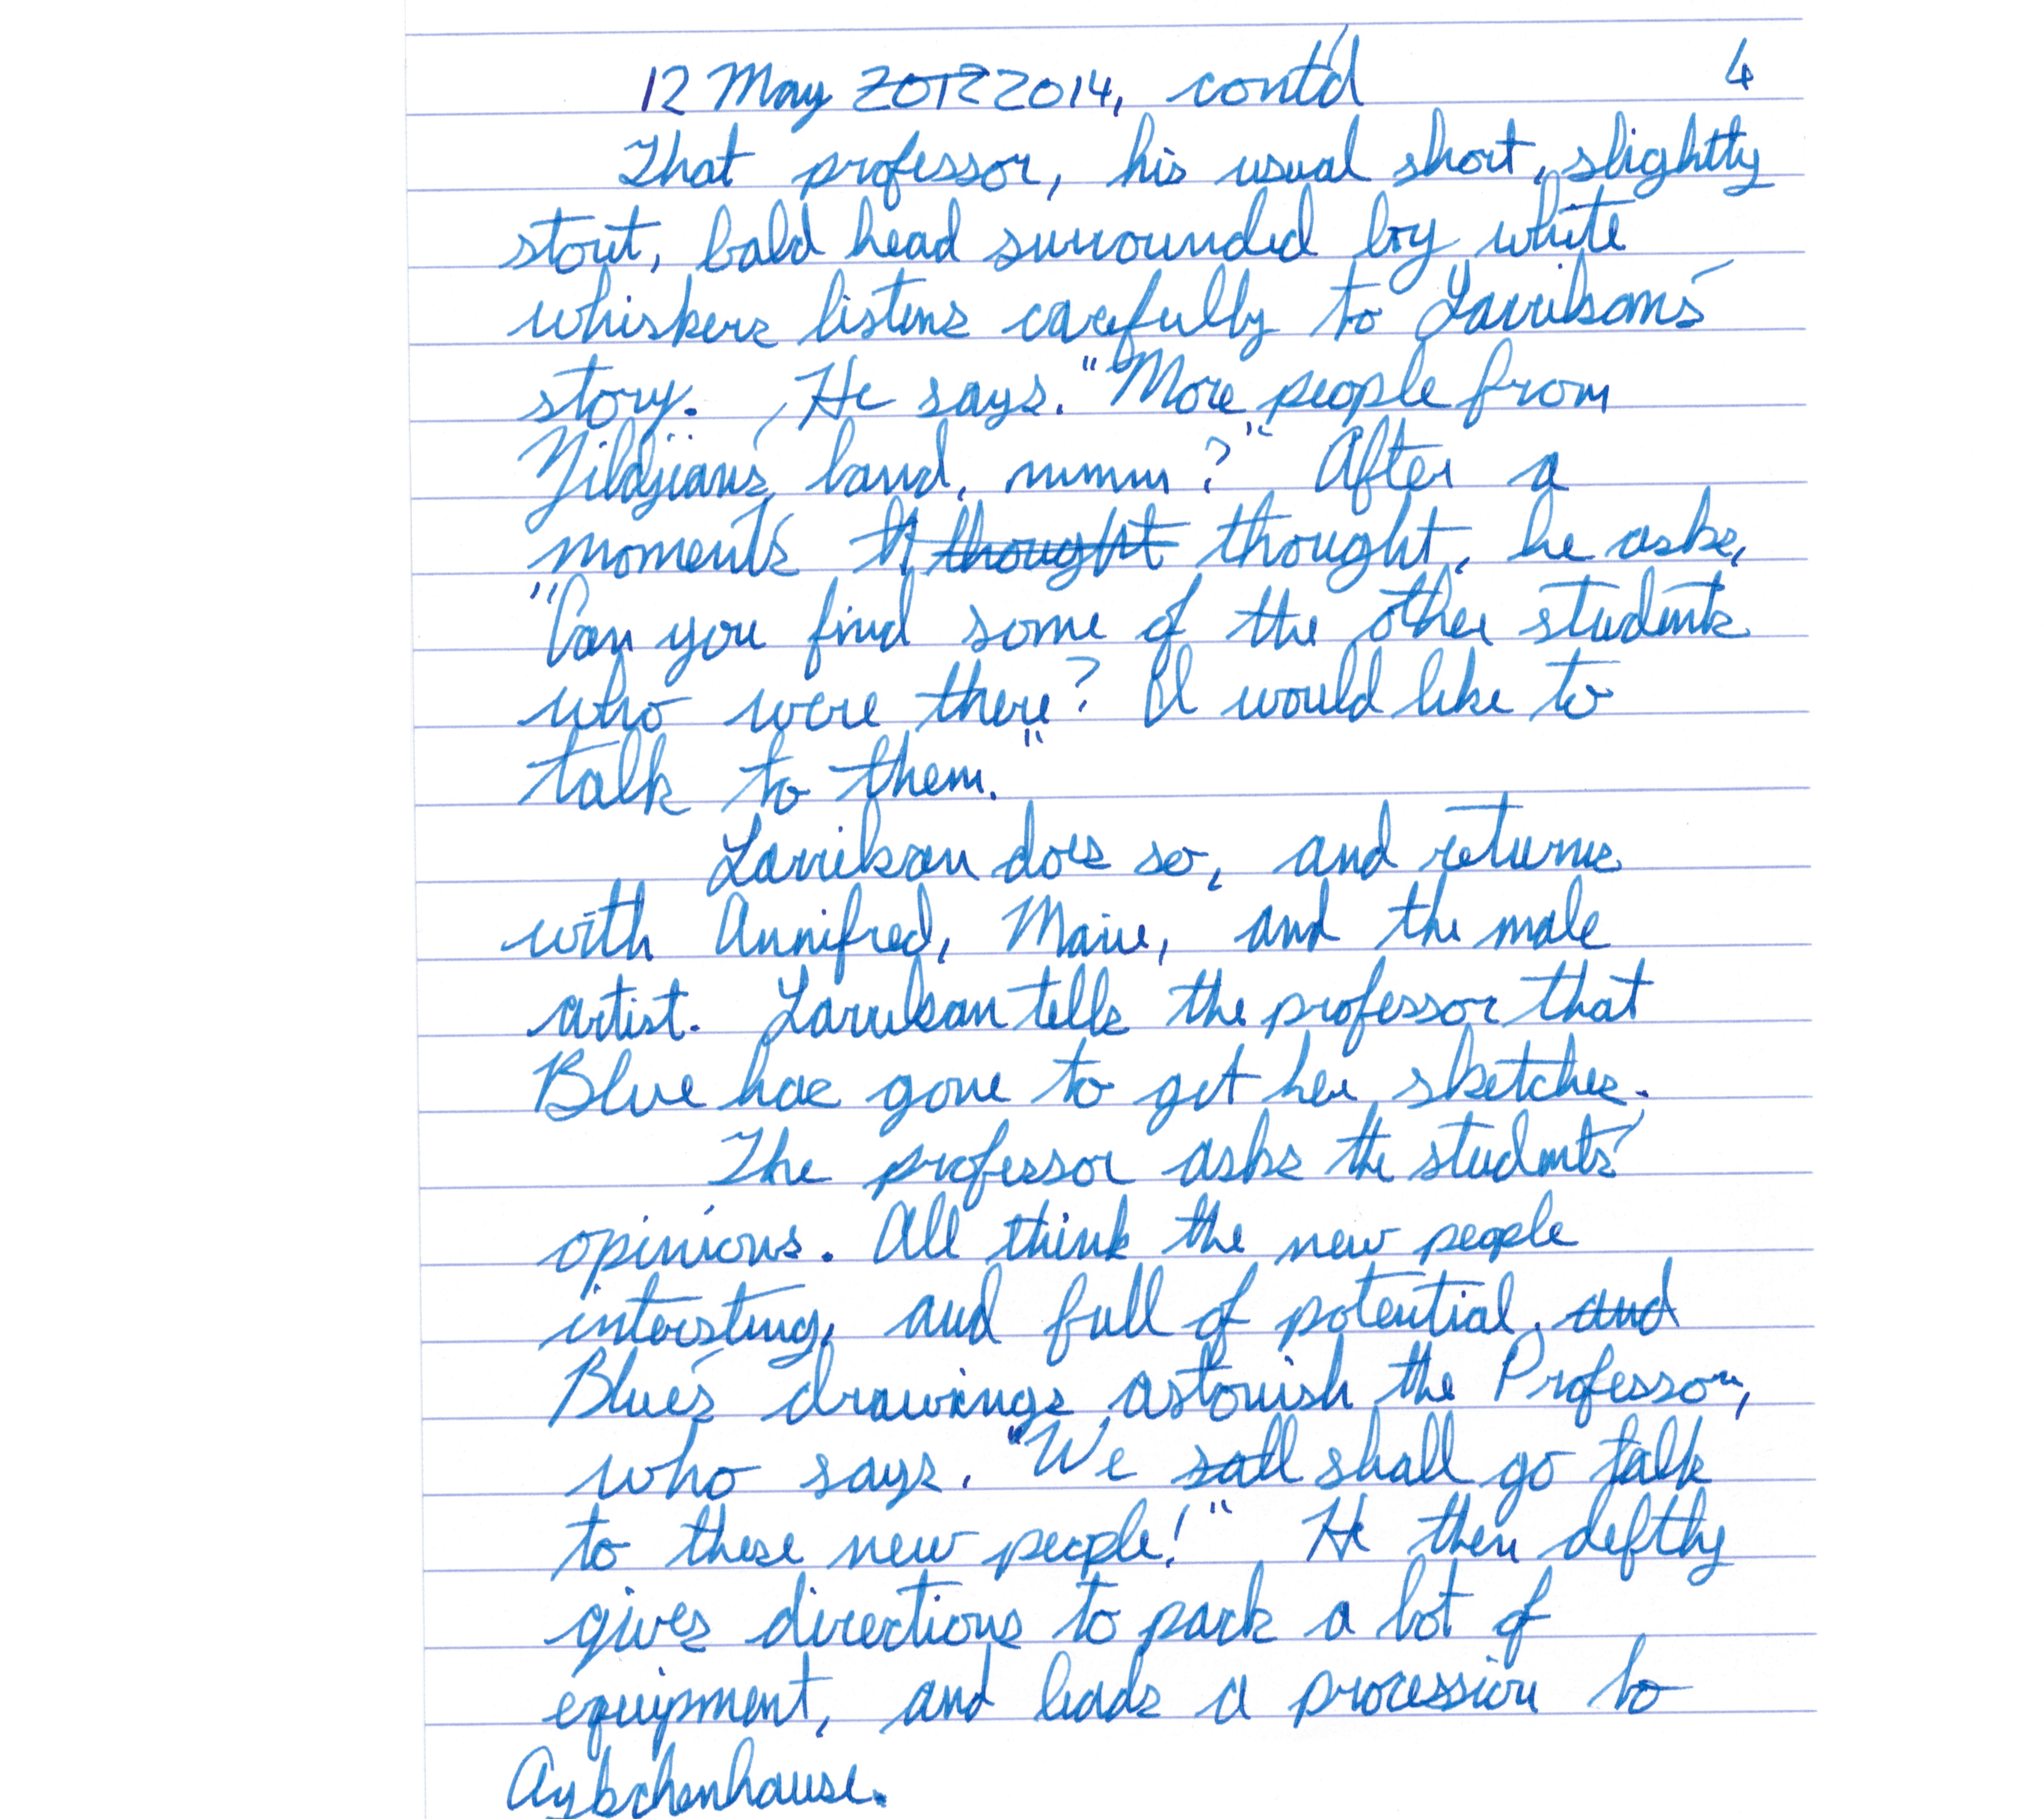 12 May 2012 2014, cont'd 4
That professor, his usual short, slightly
stout, bald head surrounded by white
whiskers listens carefully to Larrikson's
story. He says, "More people from
Yildjian's land, mmm?" After a
moment's th thought thought, he asks,
"Can you find some of the other students
who were there? I would like to
talk to them."
Larrikson does so, and returns
with Annifred, Marie, and the male
artist. Larrikson tells the professor that
Blue has gone to get her sketches.
The professor asks the students'
opinions. All think the new people
intersting, and full of potential, and
Blue's drawings astonish the Professor,
who says, "We sall shall go talk
to these new people!" He then deftly
gives directions to pack a lot of
equipment, and leads a procession to